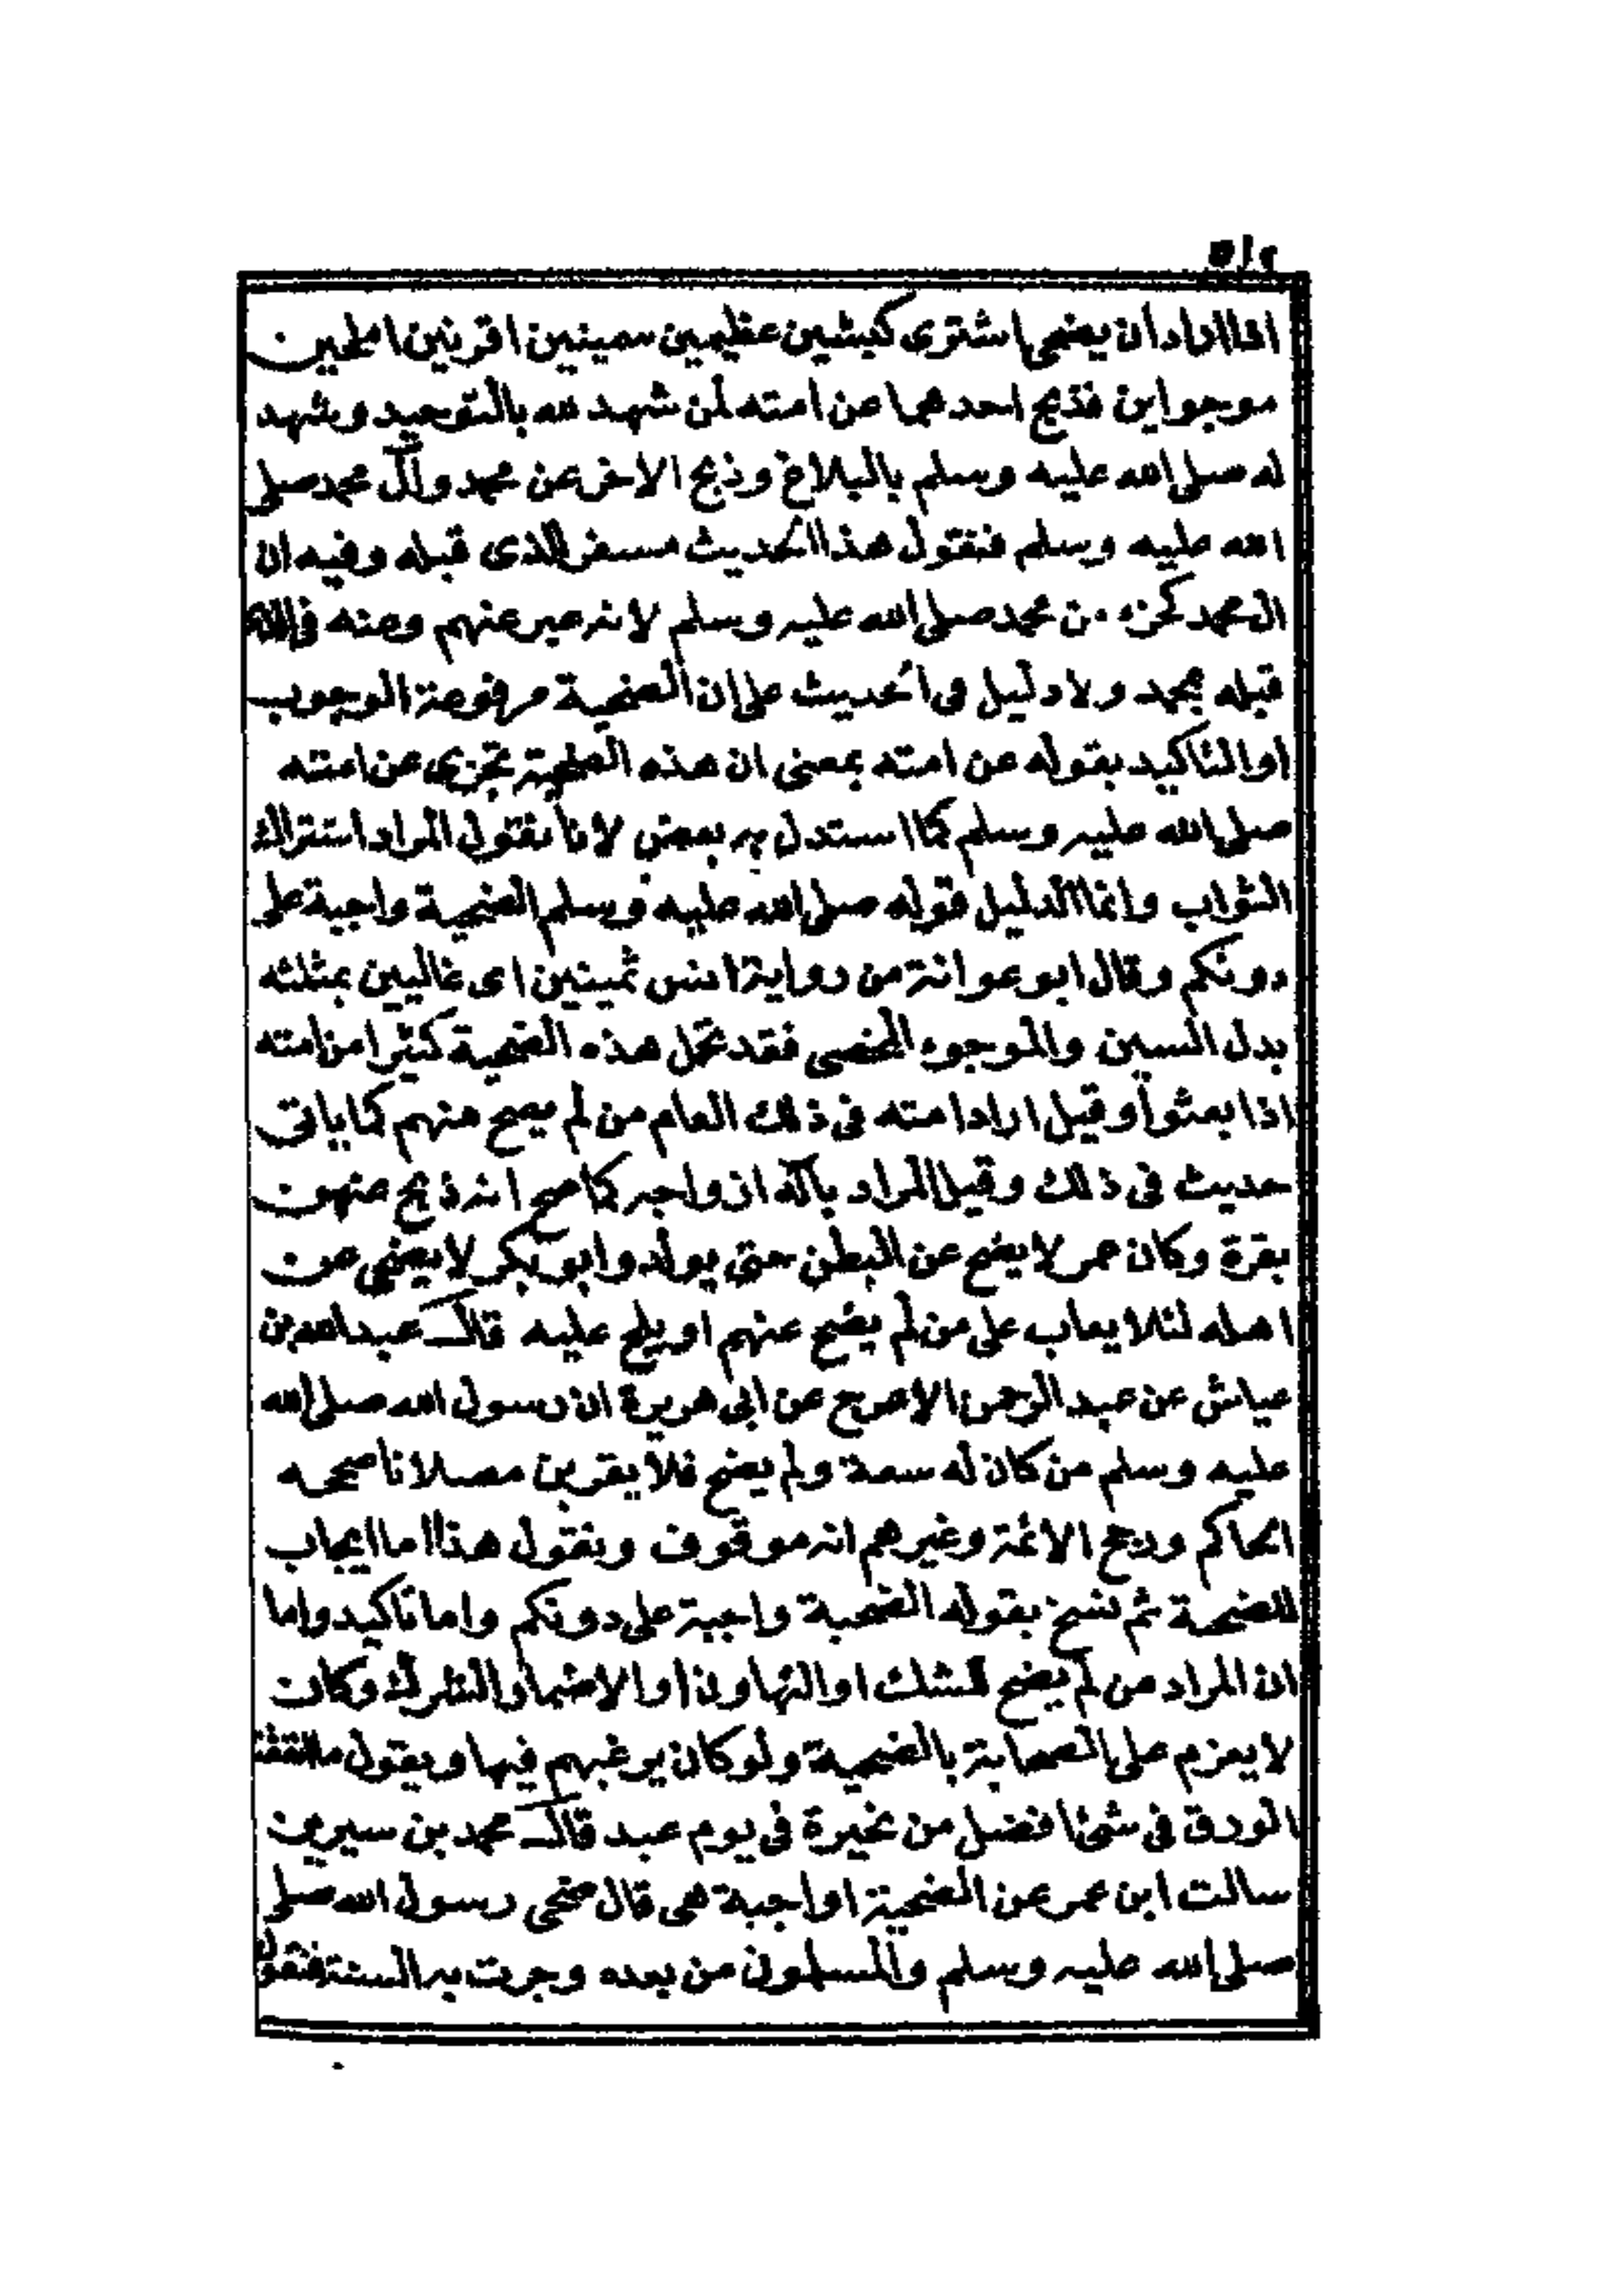 ٥١٩
اذا اراد أن يضحى اشترى كبشين عظيمين سمينين اقرنين املحين
موجوأين فذبح احدهما عن امته لمن شهد لله بالتوحيد وشهد
له صلى الله عليه وسلم بالبلاغ وذبح الاخر عن محمد وآل محمد صلى
الله عليه وسلم فنقول هذا الحديث مسفر للذى قبله وفيه ان
ال محمد كجزء من محمد صلى الله عليه وسلم لانه عبر عنهم وعنه فى
قبله بمحمد ولا دليل فى الحديث على ان الضحية مرفوعة الوجوب
او التاكيد بقوله عن امته بمعنى ان هذه الضحية تجزى عن امته
صلى الله عليه وسلم كما استدل به بعض لانا نقول المراد اشتراك
الثواب وانما الدليل قوله صلى الله عليه وسلم الضحية واجبة على
دونكم وقال ابو عوانة من رواية انس ثمينين اى غاليين بمثلثه
بدل السين والموجوء الخصى فقد تحمل هذه الضحية كثيرا من امته
اذا بعثوا وقيل اراد امته فى ذلك العام من لم يضح منهم كما ياتى
حديث فى ذلك وقيل المراد بآله ازواجه كما صح انه ذبح عنهن
بقرة وكان عمر لا يضح عن البطن حتى يولد وابو بكر لا يضحى عن
اهله لئلا يعاب على من لم يضح عنهم او يلح عليه قال عبد الله بن
عياش عن عبد الرحمن الاعرج عن ابى هريرة ان رسول الله صلى الله
عليه وسلم من كان له سعة ولم يضح فلا يقربن مصلانا صححه
الحاكم ورجح الائمة وغيرهم انه موقوف ونقول هذا اما ايجاب
للضحية ثم نسخ بقوله الضحية واجبة على دونكم واما تاكيد واما
ان المراد من لم يضح لشك او التهاون او لا والترك وكان
لا يعزم على الصحابة بالضحية ولو كان يرغبهم فيها ويقول ما انفقت
الورق فى شئ افضل من نحيرة فى يوم عيد قال محمد بن سيرين
سالت ابن عمر عن الضحية اواجبة هى قال ضحى رسول الله صلى
صلى الله عليه وسلم والمسلمون من بعده وجرت به السنة فنقول